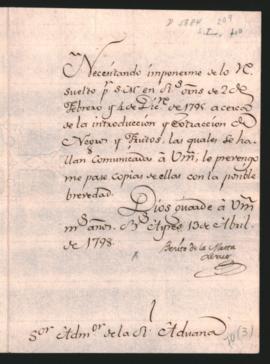 Necesitando imponerme de lo Re
suelto pr. S.M. en Rs. ornes de 2 de
Febrero y 4 de Dic.e de 1796 acerca
de la introduccion y extraccion de
Negros y Frutos, las quales se ha
llan comunicadas à Vm, le prevengo
me pase copias de ellas con la posible
brevedad.
Dios guarde à Vm
ms. años. Bs. Ayres 13 de Abril
de 1798.
Benito de la Matta
Linares
Sor. Admor. de la Rl. Aduana